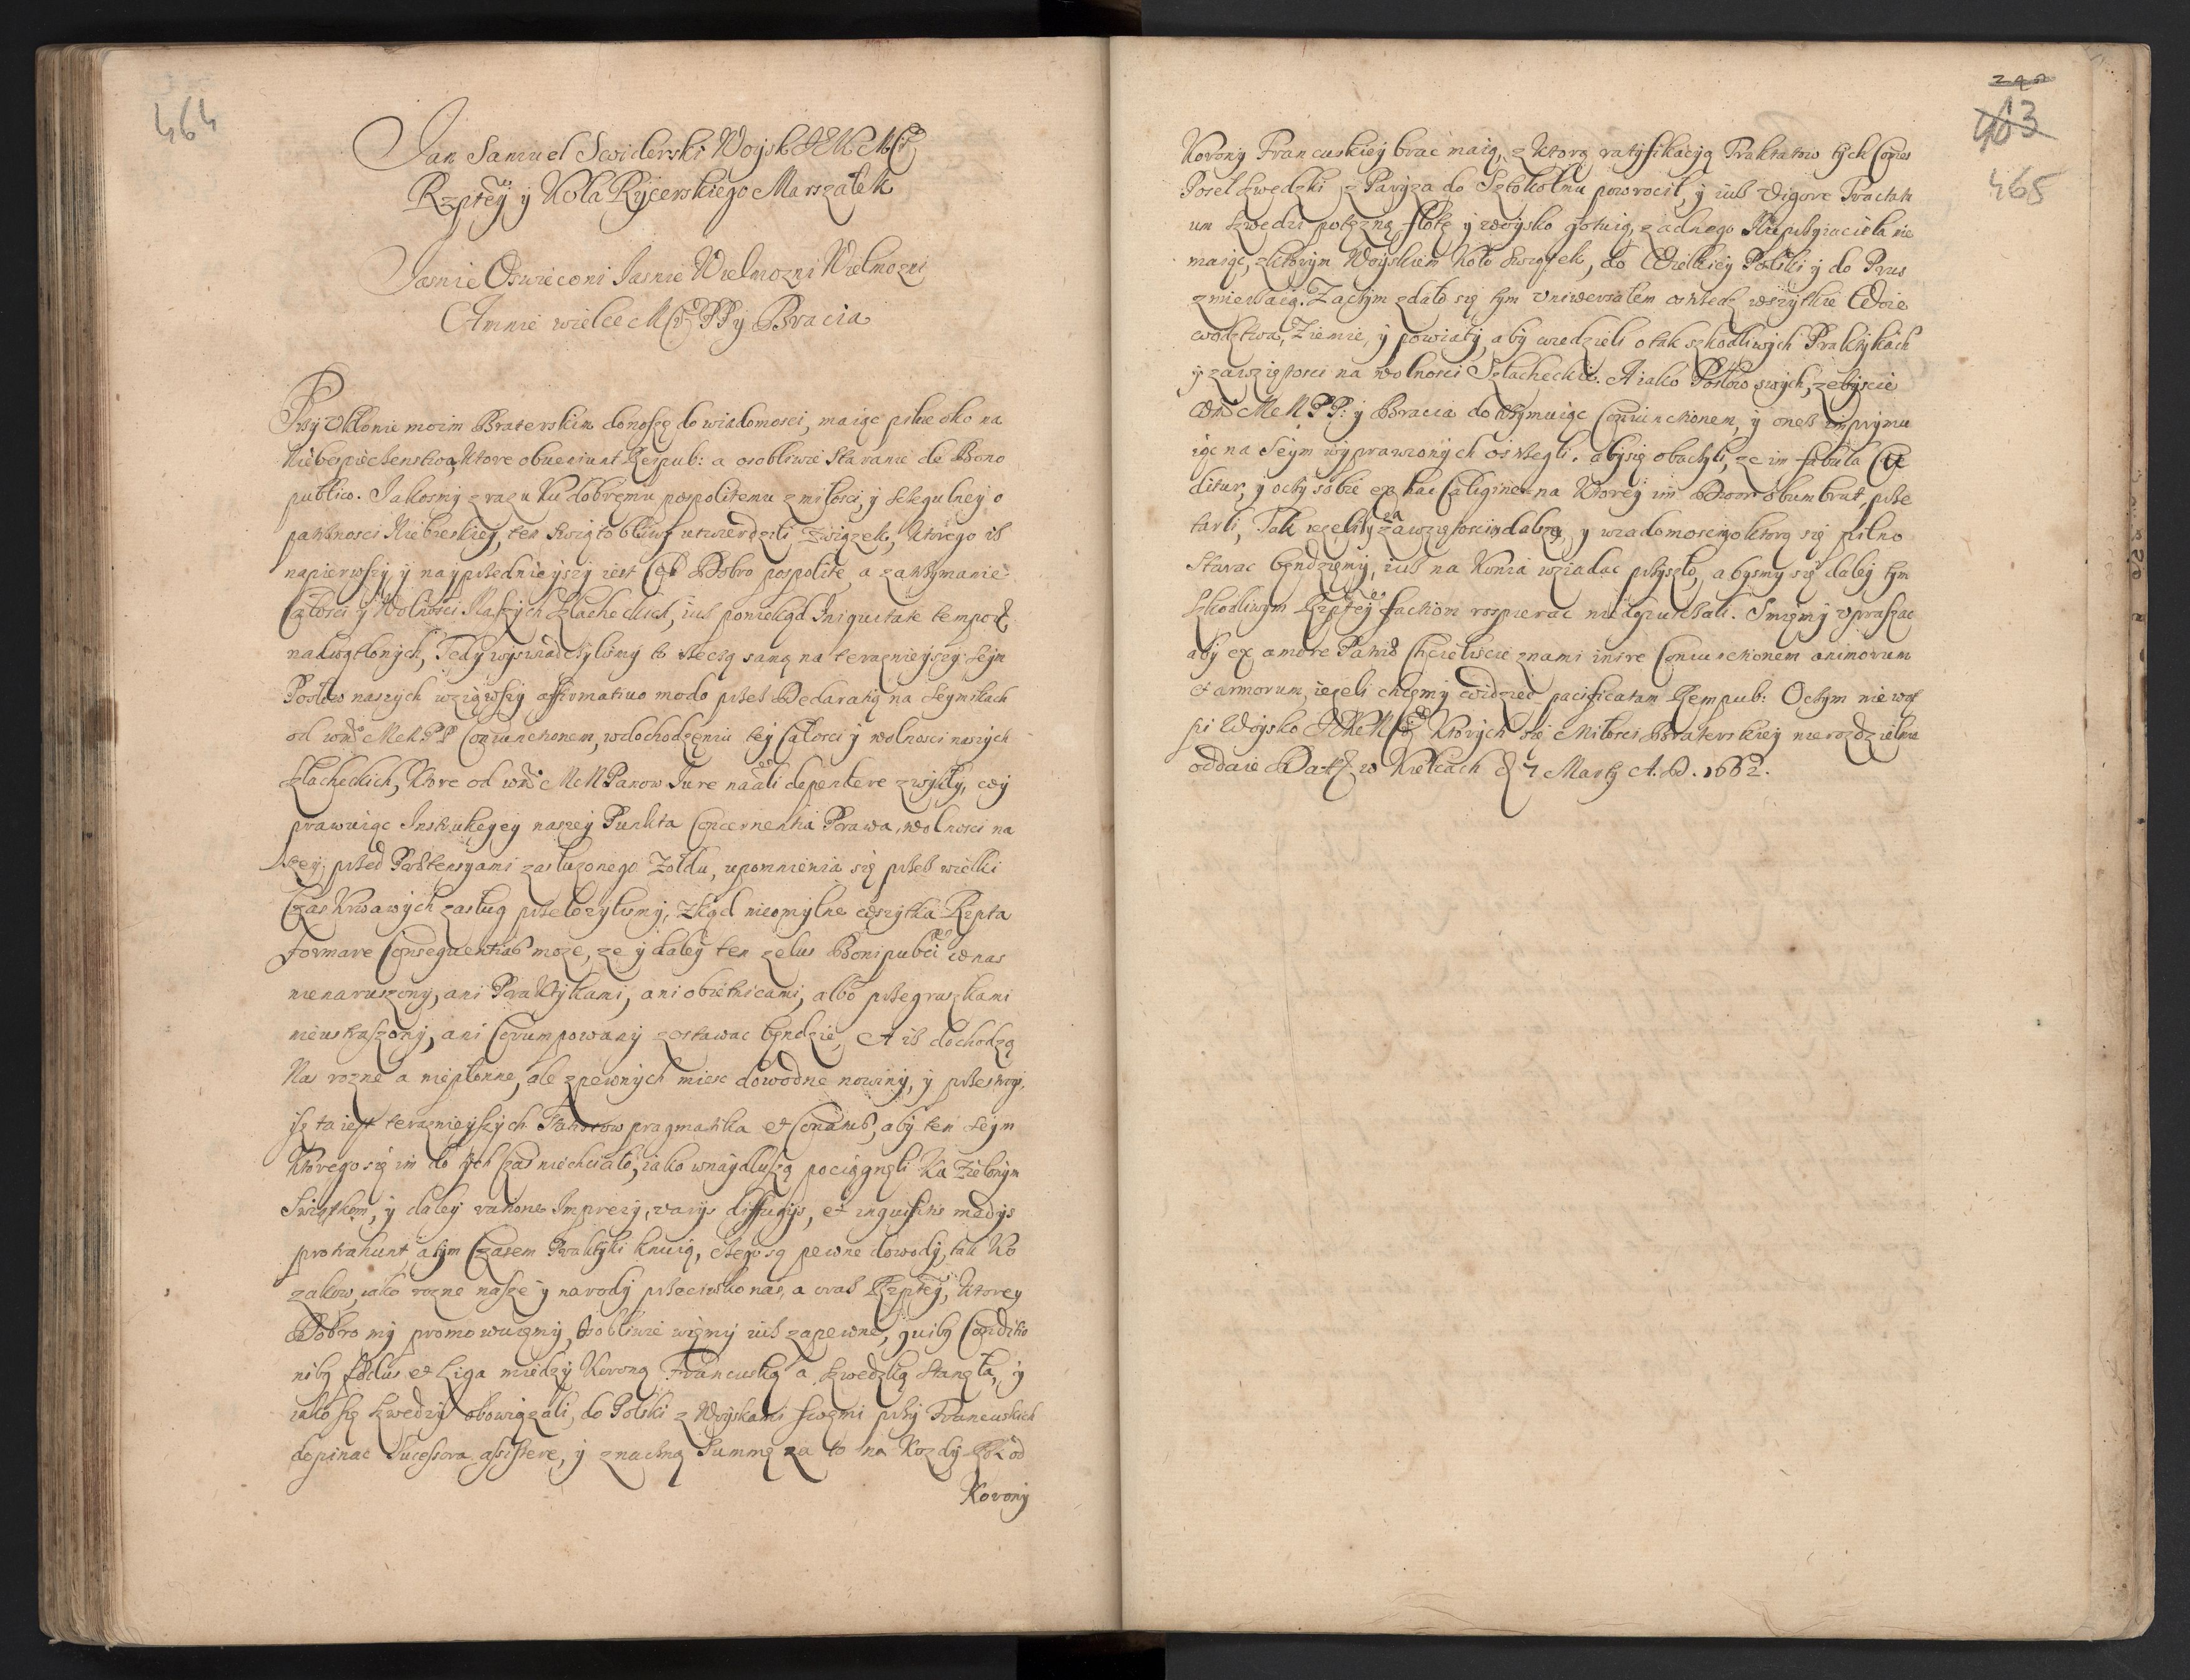 464
Jan Samuel Swiderski Woysk JEKMCi
Rzptey y Koła Rycerskiego Marszałek
Jasnie Oswieconi Jasnie Wielmozni Wielmozni
A mnie wielce MCi PP y Bracia
Przy Ukłonie moim Braterskim donoszę do wiadomosci, maiąc pilne oko na
Niebespieczenstwa, ktore obueniunt Reipub: a osobliwie staranie de Bono
publico. Jakosmy z razu ku dobremu pospolitemu z miłosci, y sczegulney o
patrznosci Niebieskiey, ten swiątobliwy utwierdzili Związek, ktorego isz
napierwszy y nayprzednieyszy iest Cel Dobro pospolite, a zatrzymanie
Całosci y Wolnosci Naszych Szlacheckich, iusz poniekąd Iniquitate tempor
nadwątlonych, Tedy wyswiadczylismy to rzeczą samą na terazniejszy Seym
Posłow naszych wziąwszy affirmatiuo modo przez Declaratią na Seymikach
od wm MMPP Coniunctionem, w dochodzeniu tey Całosci y wolnosci naszych
Szlacheckich, Ktore od wm MM Panow Iure nãali dependere zwykły, wy
prawuiąc Instrukcyey naszey Punkta Concernentia Prawa, wolnosci na
szey, przed Prætensyami zasłuzonego Zołdu, upomnienia się przez wielki
Czas krwawych zasług przełozylismy, Zkąd nieomylne wszytka Rzpta
formare Consequentias moze, ze y daley ten zelus Boni pubci w nas
nienaruszony, ani Praktykami, ani obietnicami, albo przegruszkami
nieustraszony, ani Corumpowany zostawac będzie, A isz dochodzą
Nas rozne a niepłonne, ale z pewnych miesc dowodne nowiny, y przestrogi,
isz ta iest terazniejszych Statistow pragmatika et Conatus, aby ten Seym
Ktorego się im do tych czas niechciało, iako wnaydłuszą pociągnęli Ku Zielonym
Swiątkom, y daley ratione Imprezy, varijs diffugijs, et inquisitis modijs
protrahunt, a tym Czasem Praktyki knuią, czego są pewne dowody, tak Ko
zakow, iako rozne nasze y narody przeciwko nas, a wraz Rzptey, Ktorey
Dobro my promowuiemy, Osobliwie wiemy iusz zapewne, quibus Conditio
nibus fædus et Liga między Koroną Francuską a szwedzką stanęła, y
iako się szwedzy obowiązali, do Polski z Woyskami swemi przy Francuskich
dopinac Sucessora assistere, y znaczną Summę za to na Kozdy Rok od
Korony
463
465
Korony Francuskiey brac maią, z ktorą ratyfikacyą Traktatow tych Conies
Poseł szwedzki z Paryza do Sztokolmu powrocił, y iusz Vigore Tractatu
um szwedzi potęzną flotę y woysko gotuią, zadnego Nieprzyiaciela nie
maiąc, z ktorym Woyskiem koło Swiątek, do Wielkiey Polski y do Prus
zmierzaią. Zaczym zdało się tym Uniwersałem ostrzedz wszytkie Woie
wodztwa, Ziemie, y powiaty, aby wiedzieli o tak szkodliwych Praktykach
y zawziętosci na wolnosci Szlacheckie. A iako Posłow swych, zebyscie
Wm MMPP: y Bracia dotrzymuiąc Coniunctionem, y onesz imprymu
iąc na Seym wyprawionych ostrzegli, aby się obaczyli, ze im fabula Cu
ditur, y oczy sobie ex hac Caligine na Ktorey im Dwor obumbrat, prze
tarli, Tak iezeliby zawziętosci dalsza, y wiadomosci, o ktorą się pilno
starac będziemy, iusz na konia wsiadac przyszło, abysmy się daley tym
szkodliwym Rzptey faction rospierac niedopuszczali. Smiemy Upraszac
aby ex amore Patriæ Chcieliscie z nami inire Coniunctionem animorum
et armorum, iezeli chcemy widziec pacificatam Rempub: O czym nie wąt
pi Woysko JKMCi Ktorych się Miłosci Braterskiey nierozdzielnie
oddaie Dat w Kielcach D 7 Marty A. D. 1662.